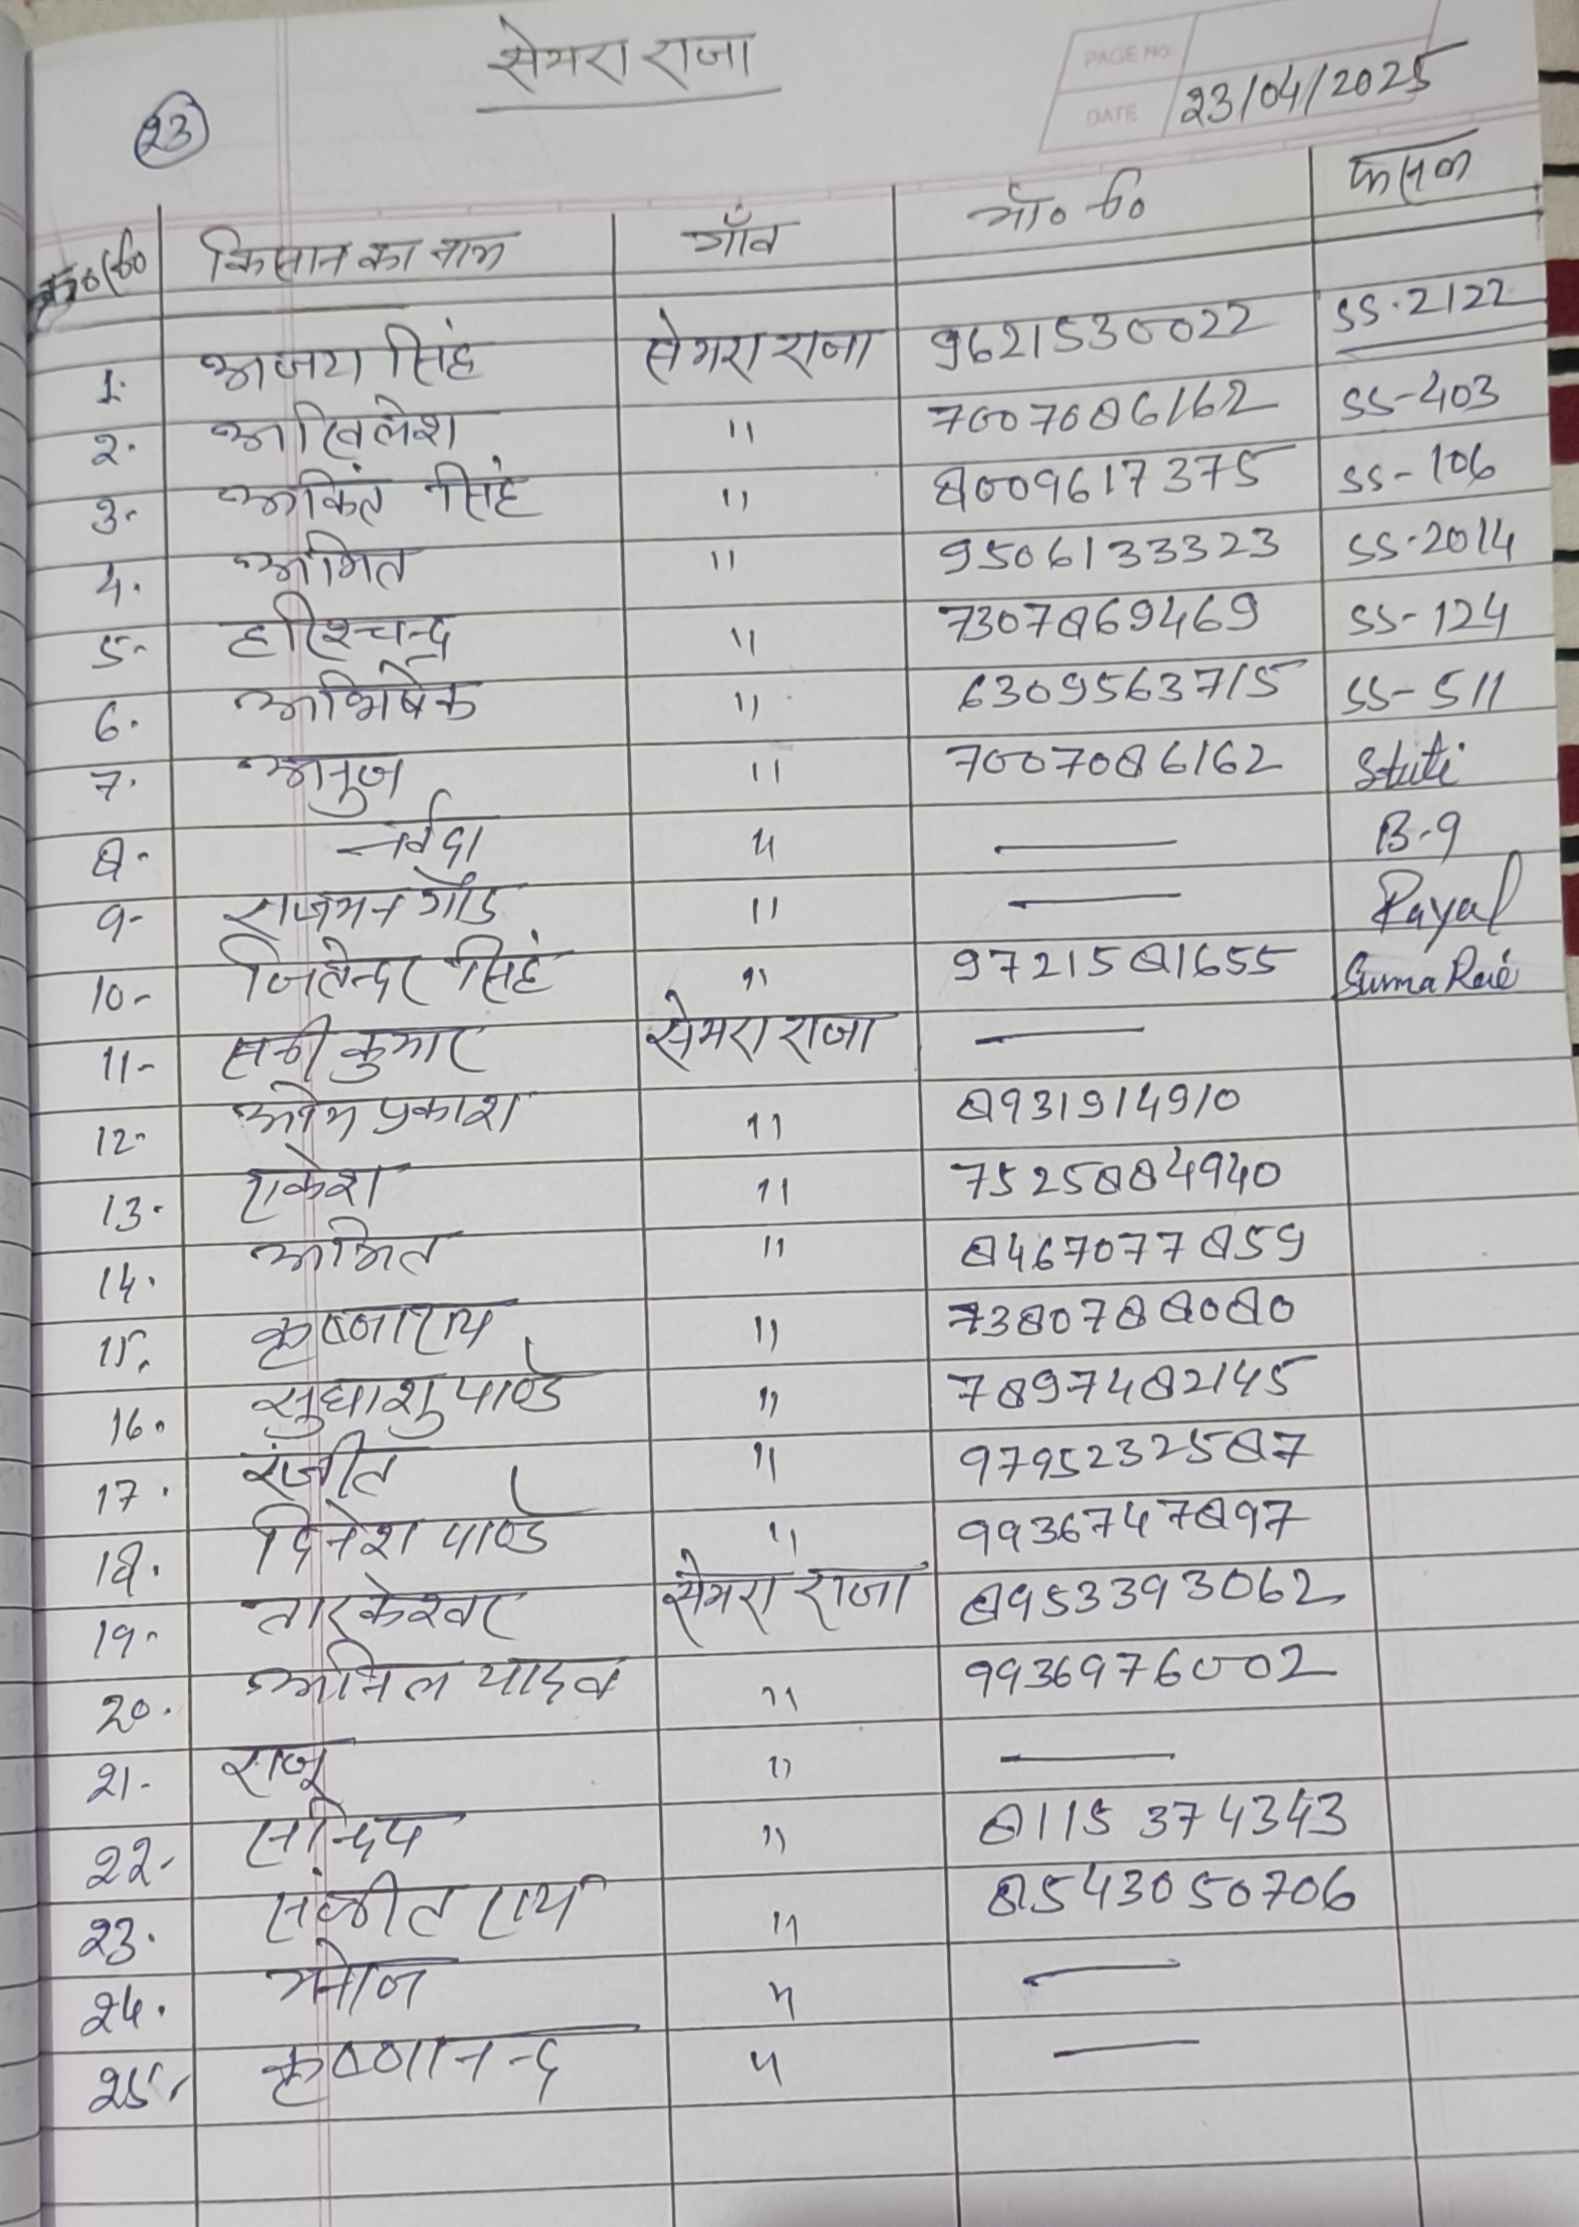 सेमरा राजा
23
PAGE NO
DATE 23/04/2025
क्र०सं० किसान का नाम गाँव मो० नं० फसल
1. अजय सिंह सेमरा राजा 9621530022 SS-2122
2. अखिलेश " 7007086162 SS-403
3. अंकित सिंह " 8009617375 SS-106
4. अमित " 9506133323 SS-2014
5. हरिश्चन्द्र " 7307869469 SS-124
6. अभिषेक " 6309563715 SS-511
7. अनुज " 7007086162 Stuti
8. नर्वदा " — B-9
9- राजमन गोंड " — Payal
10- जितेन्दर सिंह " 9721581655 Suma Rai
11- सन्नी कुमार सेमरा राजा —
12- ओम प्रकाश " 8931914910
13. राकेश " 7525884940
14. अमित " 8467077859
15. कृष्णा राय " 7380788080
16. सुधाशु पाण्डे " 7897482145
17. रंजीत " 9795232587
18. दिनेश पाण्डे " 9936747897
19. तारकेश्वर सेमरा राजा 8953393062
20. अनिल यादव " 9936976002
21- राजू " —
22- सन्दिप " 8115374343
23. संजीत राय " 8543050706
24. मनोज " —
25. कृष्णानन्द " —